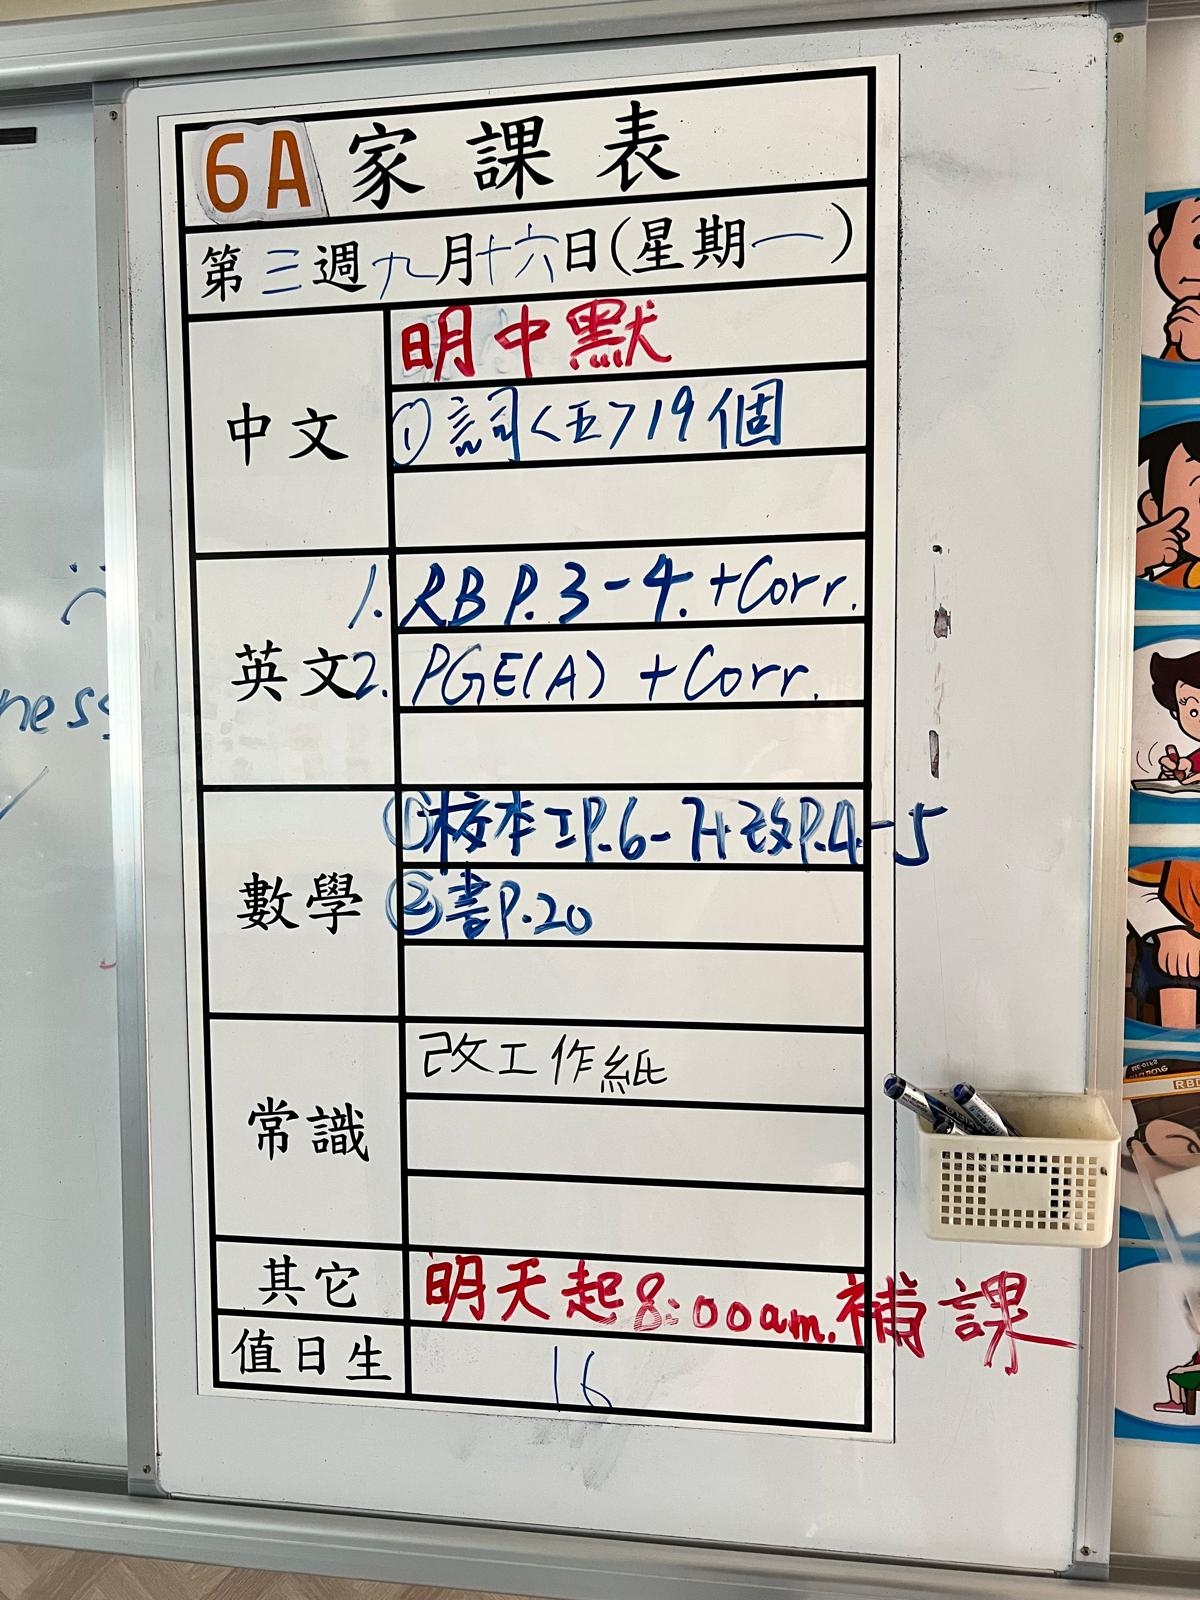 6A 家課表
第三週九月十六日(星期一)
中文
明中默
① 詞<五>19個
英文
1. RB P.3-4. +Corr.
2. PGE(A) +Corr.
數學
①校本工P.6-7+改P.4-5
②書P.20
常識
改工作紙
其它
明天起8:00am.補課
值日生
16
ness
RBD